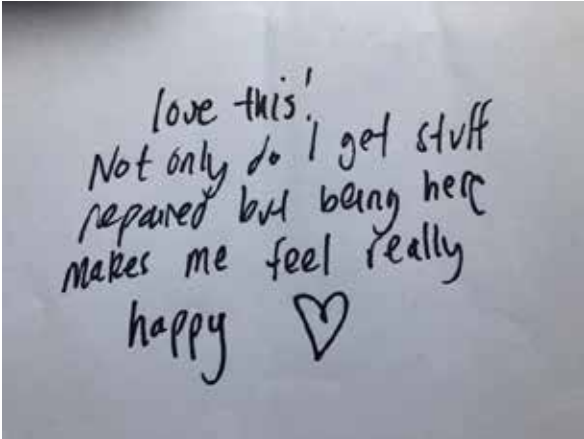 love this!
Not only do I get stuff
repaired but being here
makes me feel really
happy ♡